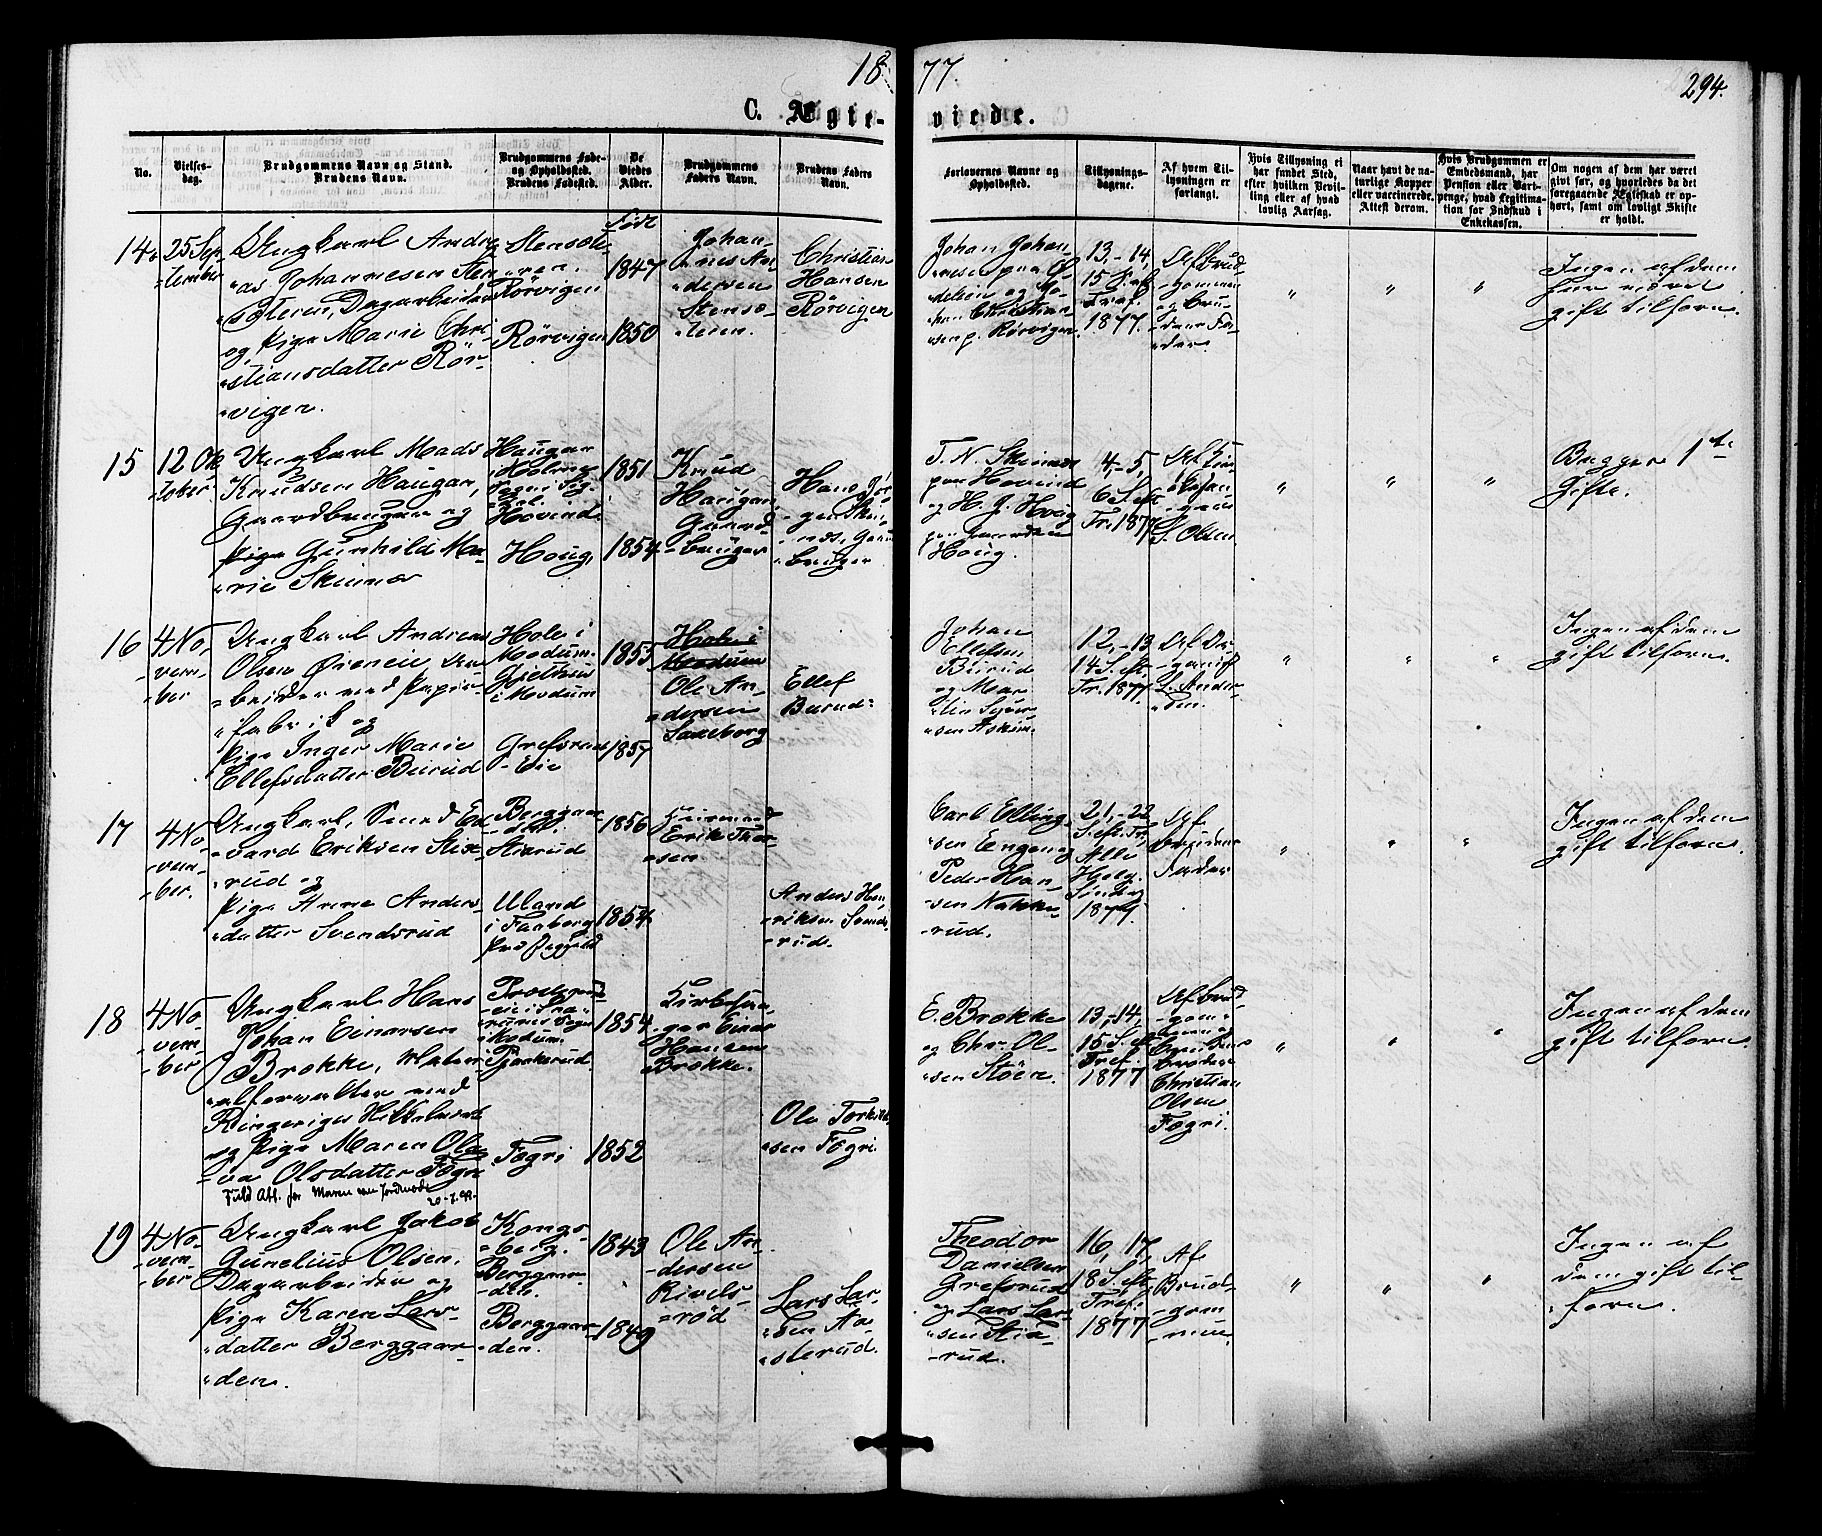 18 77.
294.
C. Ægte- viede.
No.
Vielses-
dag.
Brudgommens Navn og Stand.
Brudens Navn.
Brudgommens Føde-
og Opholdssted.
Brudens Fødested.
De
Viedes
Alder.
Brudgommens
Faders Navn.
Brudens Faders
Navn.
Forlovernes Navne og
Opholdssted.
Tillysnings-
dagene.
Af hvem Til-
lysningen er
forlangt.
Hvis Tillysning ei
har fundet Sted,
efter hvilken Bevil-
ling eller af hvad
lovlig Aarsag.
Naar havt de na-
turlige Kopper
eller vaccinerede.
Attest derom.
Hvis Brudgommen er
Embedsmand, har
Pension eller Vart-
penge, hvad Legitima-
tion for Indskud i
Enkekassen.
Om nogen af dem har været
gift før, og hvorledes da det
foregaaende Ægteskab er op-
hørt, samt om lovligt Skifte
er holdt.
14.
25 Sep-
tember
Ungkarl Andre-
as Johannesen Sten-
søteren, Dagarbeider
og Pige Marie Chri-
stiansdatter Rør-
vigen.
Stensøte-
ren.
Rørvigen
Rørvigen
1847
1850
Johan-
nes An-
dersen
Stensø-
teren.
Christian
Hansen
Rørvigen
Johan Johan-
Christian
sen p. Rørvigen
13,-14,
15 S. ef.
Tref.
1877.
Af Brud-
gommen
og Bru-
dens Fa-
der.
" " "
Ingen af dem
har været
gift tilforn.
15
12 Ok-
tober
Ungkarl Mads
Knudsen Haugan,
Gaardbruger og
Pige Gunhild Ma-
rie Skinnes
Haugan
i Holmen
Sogn i Sig-
dal.
Hovind.
Houg,
1851
1854
Knud
Haugan,
Gaard-
bruger
Hans Jør-
gen Skin-
nes, Gaard-
bruger
T. N. Skinnes
paa Hovind
og H. J. Houg
paa Gaarden
Houg.
4,-5,
6 S. eft.
Tr. 1877
S. Olsen
" " "
Begge 1ste
Gifte.
16
4 No-
vem-
ber
Ungkarl Andreas
Olsen Øieneie, Ar-
beider ved Papir-
fabrik og
Pige Inger Marie
Ellefsdatter Burud
Hole i
Modum.
Gjethus
i Modum
Grefsrud-
Eie
1855
1857
Hole i
Modum
Ole An-
dersen
Ellef
Burud
Johan
Ellefsen
Burud
og Mar-
tin
sen Askim.
12,-13
14 S. eft.
Tr. 1877.
Af Or-
ganist
L. Ander-
sen.
" " "
Ingen af dem
gift tilforn.
17
4 No-
vem-
ber.
Ungkarl, Smed Ed-
vard Eriksen Stix-
rud og
Pige Anne Anders-
datter Svendsrud
Berggaar-
den.
Stixrud
Uland
i Faaberg
Præstegjeld
1856
1854
Huusmand
Erik Thor-
sen
Anders Hen-
riksen Svends-
rud.
Carl Elling-
sen Engen og
Peder Han-
sen Nakke-
rud.
21,-22
S. eft. Tr.
Alle
Helg.
Søndag
1877.
Af
brudens
Fader
" " "
Ingen af dem
gift tilforn.
18
4 No-
vem-
ber
Ungkarl Hans
Johan Einarsen
Brokke, Materi-
alforvalter ved
Ringeriges Nikkelværk
og Pige Maren Ole-
va Olsdatter Fogri
Fuld Att. for Maren
Sogn
i Modum.
Fogri
1854
1852
Kirkesan-
ger Einar
Hansen
Brokke.
Ole Torkild-
sen Fogri.
E. Brokke
og Chr. Ol-
sen Støen.
13,-14,
15 S. eft
Tref.
1877
Af brud-
gom-
men og
Brudens
broder
Christian
Olsen
Fogri.
" " "
Ingen af dem
gift tilforn.
19
4 No-
vem-
ber
Ungkarl Jakob
Gunelius Olsen.
Dagarbeider og
Pige Karen Lars-
datter Berggaar-
den.
Kongs-
berg.
Berggaar-
den.
Berggaar-
den.
1843
1849
Ole An-
dersen
Rivels-
rød
Lars Lar-
sen Aa-
sterud.
Theodor
Danielsen
Grefsrud
og Lars Lar-
sen Stix-
rud.
16, 17,
18 S. eft
Tref.
1877
Af
Brud-
gom-
men
" " "
Ingen af
dem gift til-
forn.